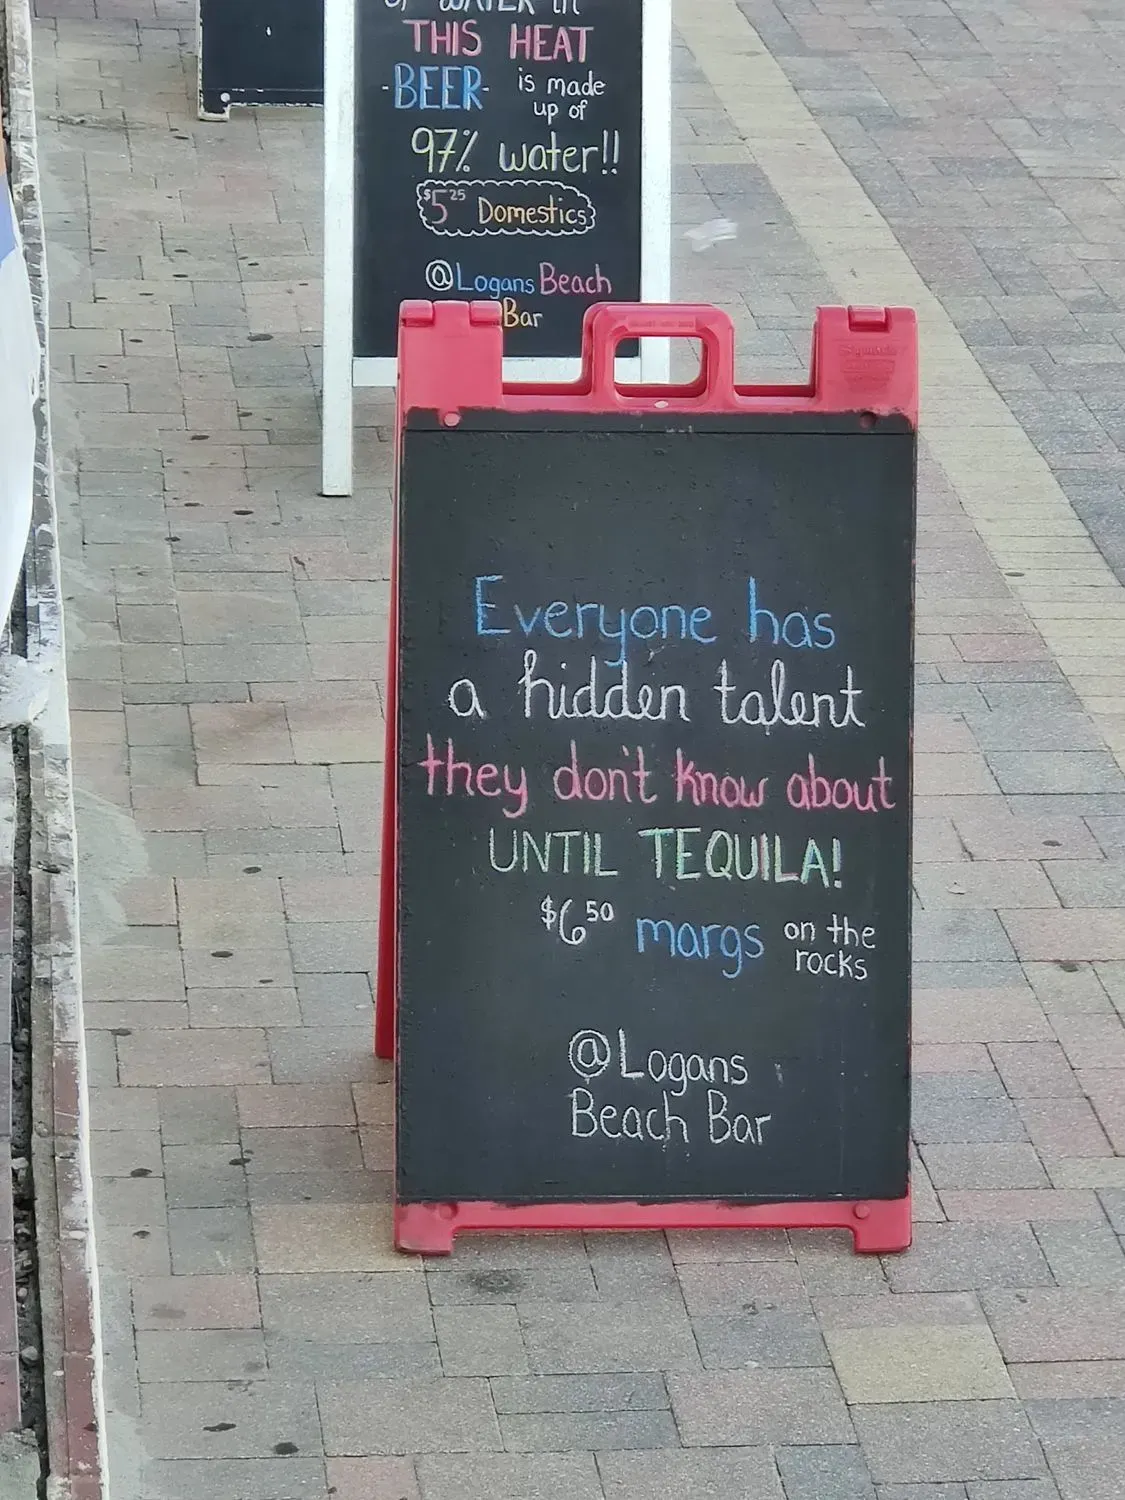 OF WATER in
THIS HEAT
-BEER- is made
up of
97% water!!
$5²⁵ Domestics
@Logans Beach
Bar
Everyone has
a hidden talent
they don't know about
UNTIL TEQUILA!
$6⁵⁰ margs on the
rocks
@Logans
Beach Bar